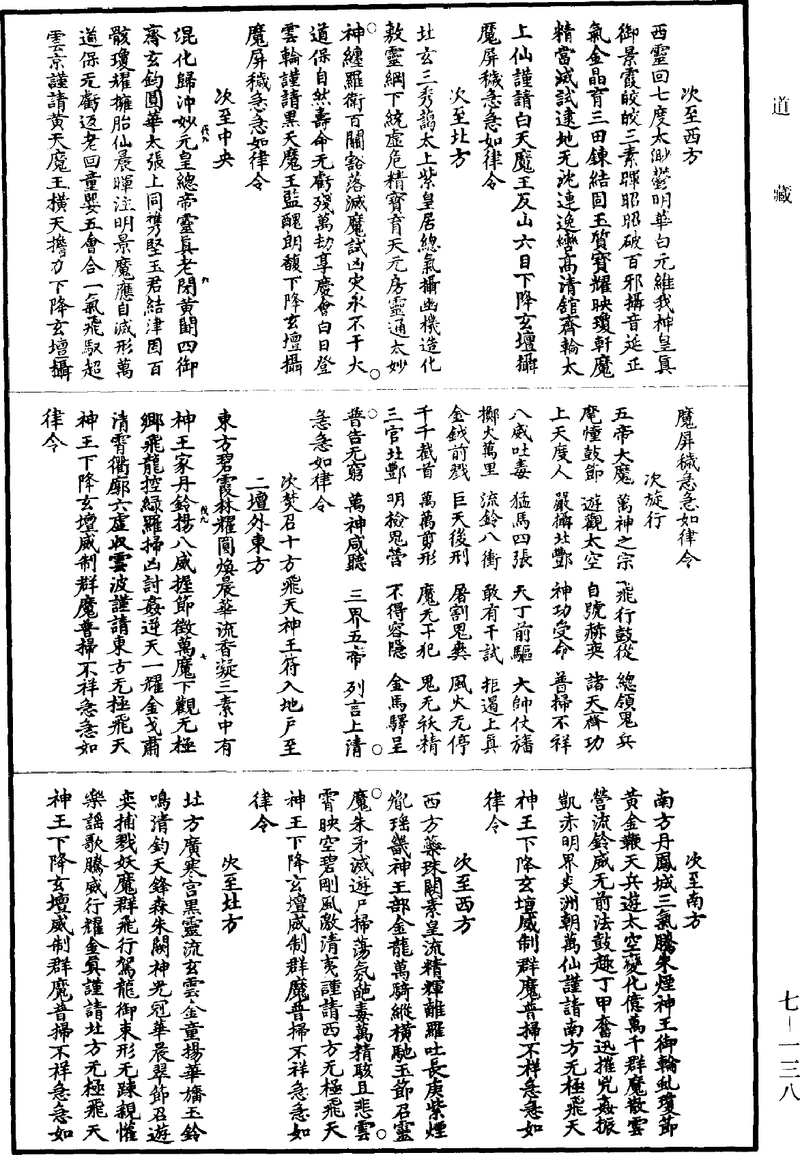 道藏
次至西方
西靈回七度太渺鬱明華白元維我神皇真
御景霞皎皎三素暉昭昭破百邪攝音延正
氣金晶育三田鍊結固玉質寶耀映瓊軒魔
精當滅試逮地无沈連逸轡高清舘齊輪太
上仙謹請白天魔王反山六目下降玄壇攝
魔屏穢急急如律令
次至北方
北玄三秀謁太上紫皇居總氣攝幽機造化
敦靈綱下統虛危精寶育天元房靈通太妙
神纏羅衛百關豁落滅魔試凶灾永不干大
道保自然壽命无虧殘萬劫享慶會白日登
雲輪謹請黑天魔王監醜朗馥下降玄壇攝
魔屏穢急急如律令
次至中央
混化歸沖妙元皇總帝靈真老閉黃關四御
齋玄鈞圓華太張上同攜堅玉君結津固百
骸瓊耀擁胎仙晨暉注明景魔應自滅形萬
道保无虧返老回童嬰五會合一氣飛馭超
雲京謹請黃天魔王橫天擔力下降玄壇攝
魔屏穢急急如律令
次旋行
五帝大魔 萬神之宗 飛行鼓從 總領鬼兵
麾幢鼓節 遊觀太空 自號赫奕 諸天齊功
上天度人 嚴攝北酆 神功受命 普掃不祥
八威吐毒 猛馬四張 天丁前驅 大帥仗旛
擲火萬里 流鈴八衝 敢有干試 拒遏上真
金鉞前戮 巨天後刑 屠割鬼爽 風火无停
千千截首 萬萬剪形 魔无干犯 鬼无祅精
三官北酆 明檢鬼營 不得容隱 金馬驛呈
普告无窮 萬神咸聽 三界五帝 列言上清
急急如律令
次焚召十方飛天神王符入地戶至
二壇外東方
東方碧霞林耀圓煥晨華流香凝三素中有
神王家丹鈴揚八威握節徵萬魔下觀无極
鄉飛龍控綠羅掃凶討姦逆天一耀金戈肅
清霄衢廓六虛収雲波謹請東方无極飛天
神王下降玄壇威制群魔普掃不祥急急如
律令
次至南方
南方丹鳳城三氣騰朱煙神王御輪虬瓊節
黃金鞭天兵遊太空變化億萬千群魔散雲
營流鈴威无前法鼓趣丁甲奮迅摧兇姦振
凱赤明界炎洲朝萬仙謹請南方无極飛天
神王下降玄壇威制群魔普掃不祥急急如
律令
次至西方
西方蘂珠闕素皇流精輝離羅吐長庚紫煙
瑶畿神王部金龍萬騎縱橫馳玉節召靈
魔朱矛滅遊尸掃蕩氛毒萬精駭且悲雲
霄映空碧剛風激清夷謹請西方无極飛天
神王下降玄壇威制群魔普掃不祥急急如
律令
次至北方
北方廣寒宫黑靈流玄雲金童揚華旛玉鈴
鳴清鈞天鋒森朱闕神光冠華晨翠節召遊
奕捕戮妖魔群飛行駕龍御束形无踈親懽
樂謠歌騰威行耀金真謹請北方无極飛天
神王下降玄壇威制群魔普掃不祥急急如
七－一三八